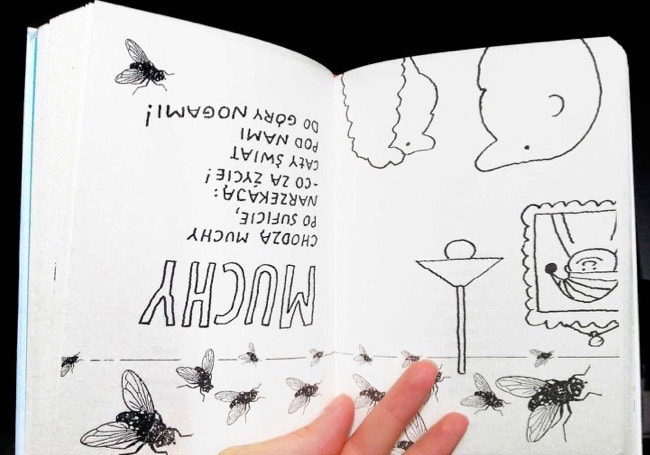 MUCHY
CHODZĄ MUCHY
PO SUFICIE,
NARZEKAJĄ:
-CO ZA ŻYCIE!
CAŁY ŚWIAT
POD NAMI
DO GÓRY NOGAMI!